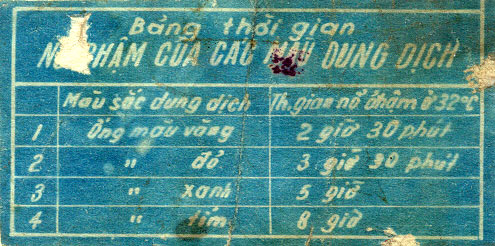 Bảng thời gian
NỔ CHẬM CỦA CÁC MẪU DUNG DỊCH
Màu sắc dung dịch Th.gian nổ chậm ở 32°C
1 Ống màu vàng 2 giờ 30 phút
2 " đỏ 3 giờ 30 phút
3 " xanh 5 giờ
4 " tím 8 giờ